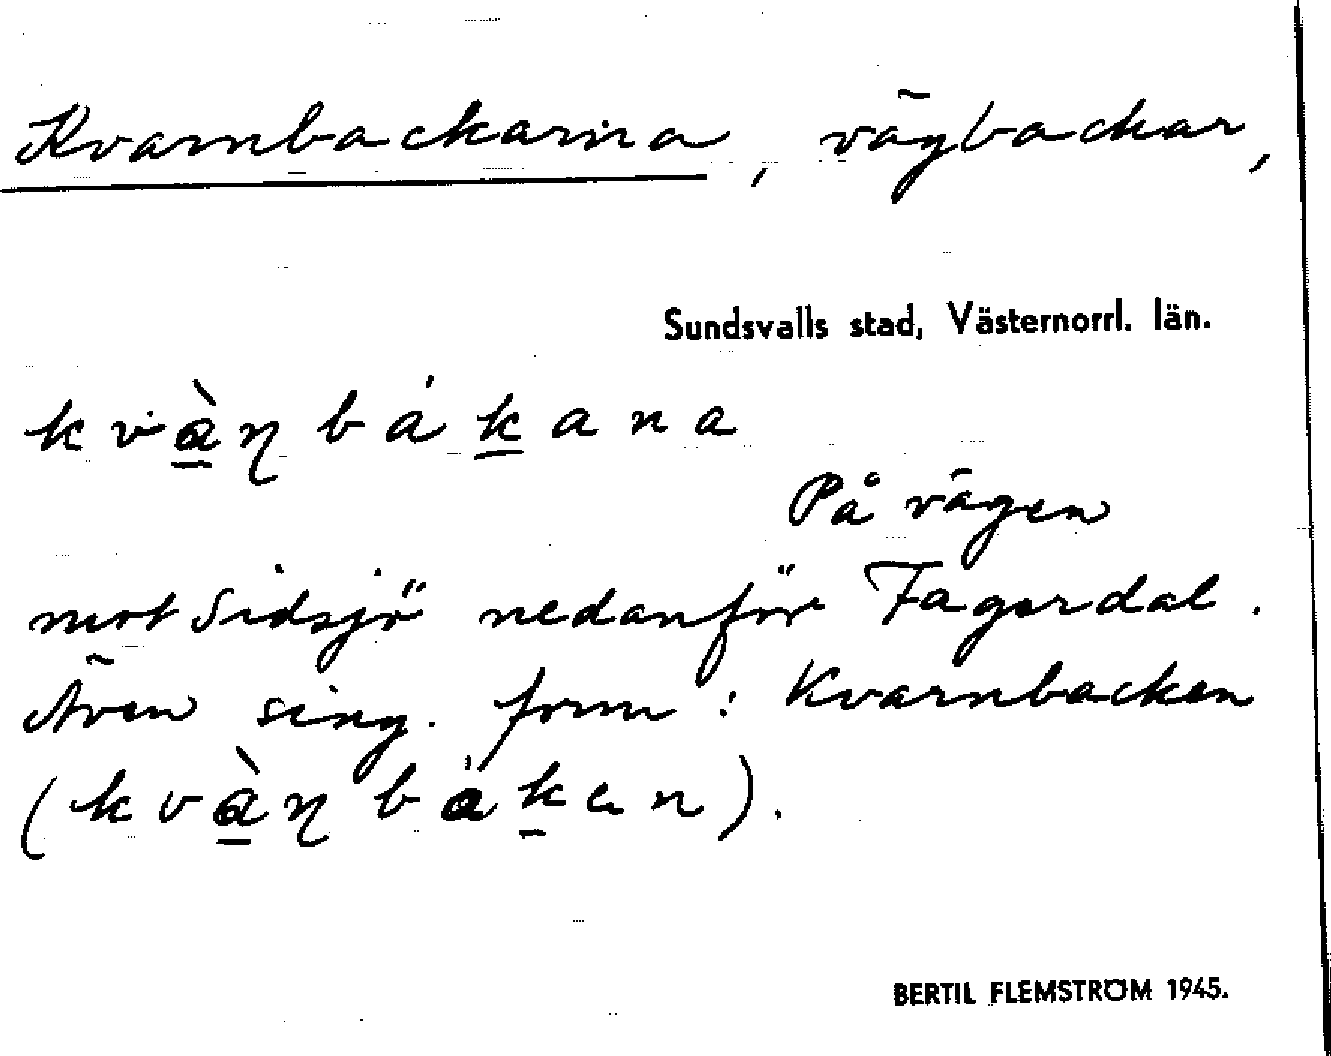 Kvarnbackarna, vägbackar,
Sundsvalls stad, Västernorrl. län.
kvà̱ɳbáḵana
På vägen
mot Sidsjö nedanför Fagerdal.
Även sing. form: Kvarnbacken
(kvà̱ɳbáḵen).
BERTIL FLEMSTRÖM 1945.